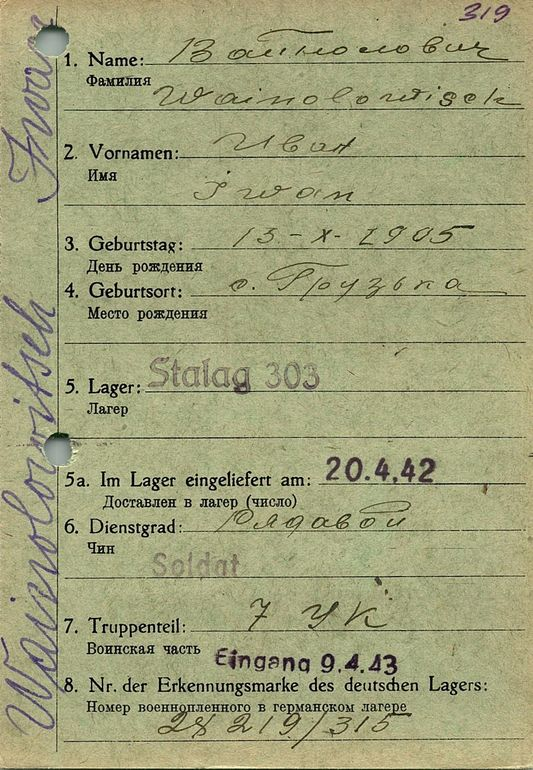 319
1. Name: Вайнолович
Фамилия
Wainolowitsch
2. Vornamen: Иван
Имя
Iwan
3. Geburtstag: 13-X-1905
День рождения
4. Geburtsort: с. Грузька
Место рождения
5. Lager: Stalag 303
Лагер
5a. Im Lager eingeliefert am: 20.4.42
Доставлен в лагер (число)
6. Dienstgrad: Рядавой
Чин
Soldat
7. Truppenteil: 7 УК
Воинская часть
Eingang 9.4.43
8. Nr. der Erkennungsmarke des deutschen Lagers:
Номер военнопленного в германском лагере
219/315
Wainolowitsch Iwan